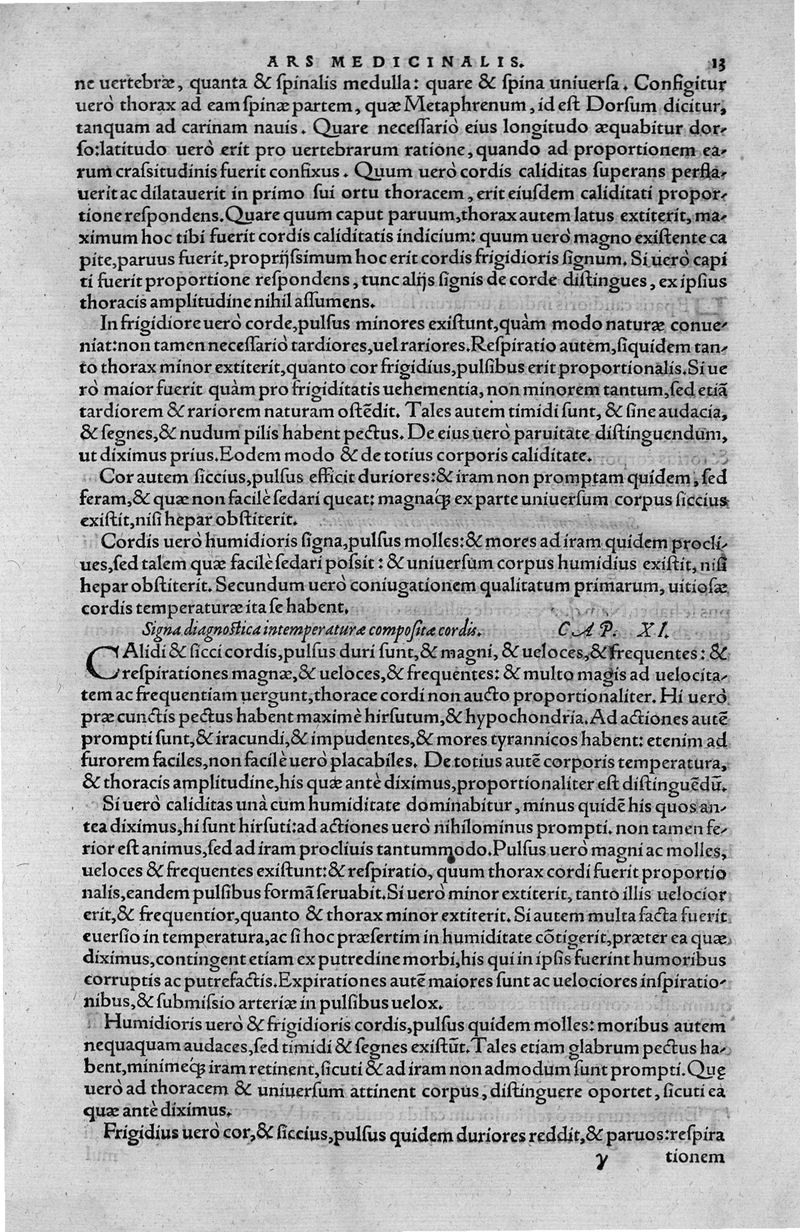 ARS MEDICINALIS. 13
ne uertebræ, quanta & ſpinalis medulla: quare & ſpina uniuerſa. Configitur
uerò thorax ad eam ſpinæ partem, quæ Metaphrenum, id eſt Dorſum dicitur,
tanquam ad carinam nauis. Quare neceſſariò eius longitudo æquabitur dor-
ſo: latitudo uerò erit pro uertebrarum ratione, quando ad proportionem ea-
rum craſsitudinis fuerit confixus. Quum uerò cordis caliditas ſuperans perfla-
uerit ac dilatauerit in primo ſui ortu thoracem, erit eiuſdem caliditati propor-
tione reſpondens. Quare quum caput paruum, thorax autem latus extiterit, ma-
ximum hoc tibi fuerit cordis caliditatis indicium: quum uerò magno exiſtente ca
pite, paruus fuerit, proprijſsimum hoc erit cordis frigidioris ſignum. Si uerò capi
ti fuerit proportione reſpondens, tunc alijs ſignis de corde diſtingues, ex ipſius
thoracis amplitudine nihil aſſumens.
In frigidiore uerò corde, pulſus minores exiſtunt, quàm modo naturæ conue-
niat: non tamen neceſſariò tardiores, uel rariores. Reſpiratio autem, ſiquidem tan-
to thorax minor extiterit, quanto cor frigidius, pulſibus erit proportionalis. Si ue
rò maior fuerit quàm pro frigiditatis uehementia, non minorem tantum, ſed etiã
tardiorem & rariorem naturam oſtẽdit. Tales autem timidi ſunt, & ſine audacia,
& ſegnes, & nudum pilis habent pectus. De eius uerò paruitate diſtinguendum,
ut diximus prius. Eodem modo & de totius corporis caliditate.
Cor autem ſiccius, pulſus efficit duriores: & iram non promptam quidem, ſed
feram, & quæ non facilè ſedari queat: magnaꝗ́; ex parte uniuerſum corpus ſiccius
exiſtit, niſi hepar obſtiterit.
Cordis uerò humidioris ſigna, pulſus molles: & mores ad iram quidem procli-
ues, ſed talem quæ facilè ſedari poſsit: & uniuerſum corpus humidius exiſtit, niſi
hepar obſtiterit. Secundum uerò coniugationem qualitatum primarum, uitioſæ
cordis temperaturæ ita ſe habent.
Signa diagnoſtica intemperaturæ compoſitæ cordis. CAP. XI.
CAlidi & ſicci cordis, pulſus duri ſunt, & magni, & ueloces, & frequentes: &
reſpirationes magnæ, & ueloces, & frequentes: & multo magis ad uelocita-
tem ac frequentiam uergunt, thorace cordi non aucto proportionaliter. Hi uerò
præ cunctis pectus habent maximè hirſutum, & hypochondria. Ad actiones autẽ
prompti ſunt, & iracundi, & impudentes, & mores tyrannicos habent: etenim ad
furorem faciles, non facilè uerò placabiles. De totius autẽ corporis temperatura,
& thoracis amplitudine, his quæ antè diximus, proportionaliter eſt diſtinguẽdũ.
Si uerò caliditas unà cum humiditate dominabitur, minus quidẽ his quos an-
tea diximus, hi ſunt hirſuti: ad actiones uerò nihilominus prompti. non tamen fe-
rior eſt animus, ſed ad iram procliuis tantummodo. Pulſus uerò magni ac molles,
ueloces & frequentes exiſtunt: & reſpiratio, quum thorax cordi fuerit proportio
nalis, eandem pulſibus formã ſeruabit. Si uerò minor extiterit, tanto illis uelocior
erit, & frequentior, quanto & thorax minor extiterit. Si autem multa facta fuerit
euerſio in temperatura, ac ſi hoc præſertim in humiditate cõtigerit, præter ea quæ
diximus, contingent etiam ex putredine morbi, his qui in ipſis fuerint humoribus
corruptis ac putrefactis. Expirationes autẽ maiores ſunt ac uelociores inſpiratio-
nibus, & ſubmiſsio arteriæ in pulſibus uelox.
Humidioris uerò & frigidioris cordis, pulſus quidem molles: moribus autem
nequaquam audaces, ſed timidi & ſegnes exiſtũt. Tales etiam glabrum pectus ha-
bent, minimeꝗ́; iram retinent, ſicuti & ad iram non admodum ſunt prompti. Quę
uerò ad thoracem & uniuerſum attinent corpus, diſtinguere oportet, ſicuti ea
quæ antè diximus.
Frigidius uerò cor, & ſiccius, pulſus quidem duriores reddit, & paruos: reſpira
γ tionem